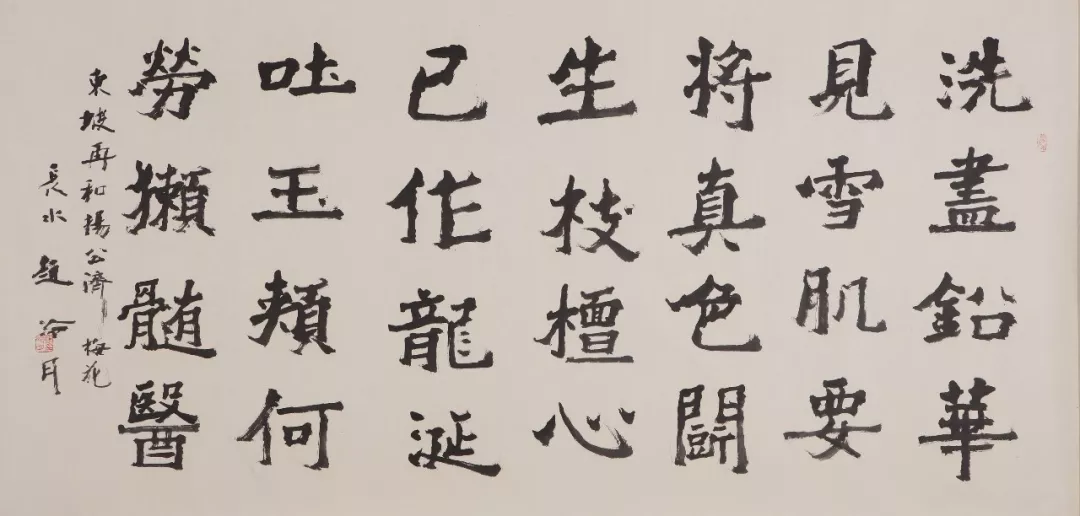 洗盡鉛華
見雪肌要
將真色鬪
生枝檀心
已作龍涎
吐玉頰何
勞獺髓醫
東坡再和楊公濟梅花
長水趙冷月